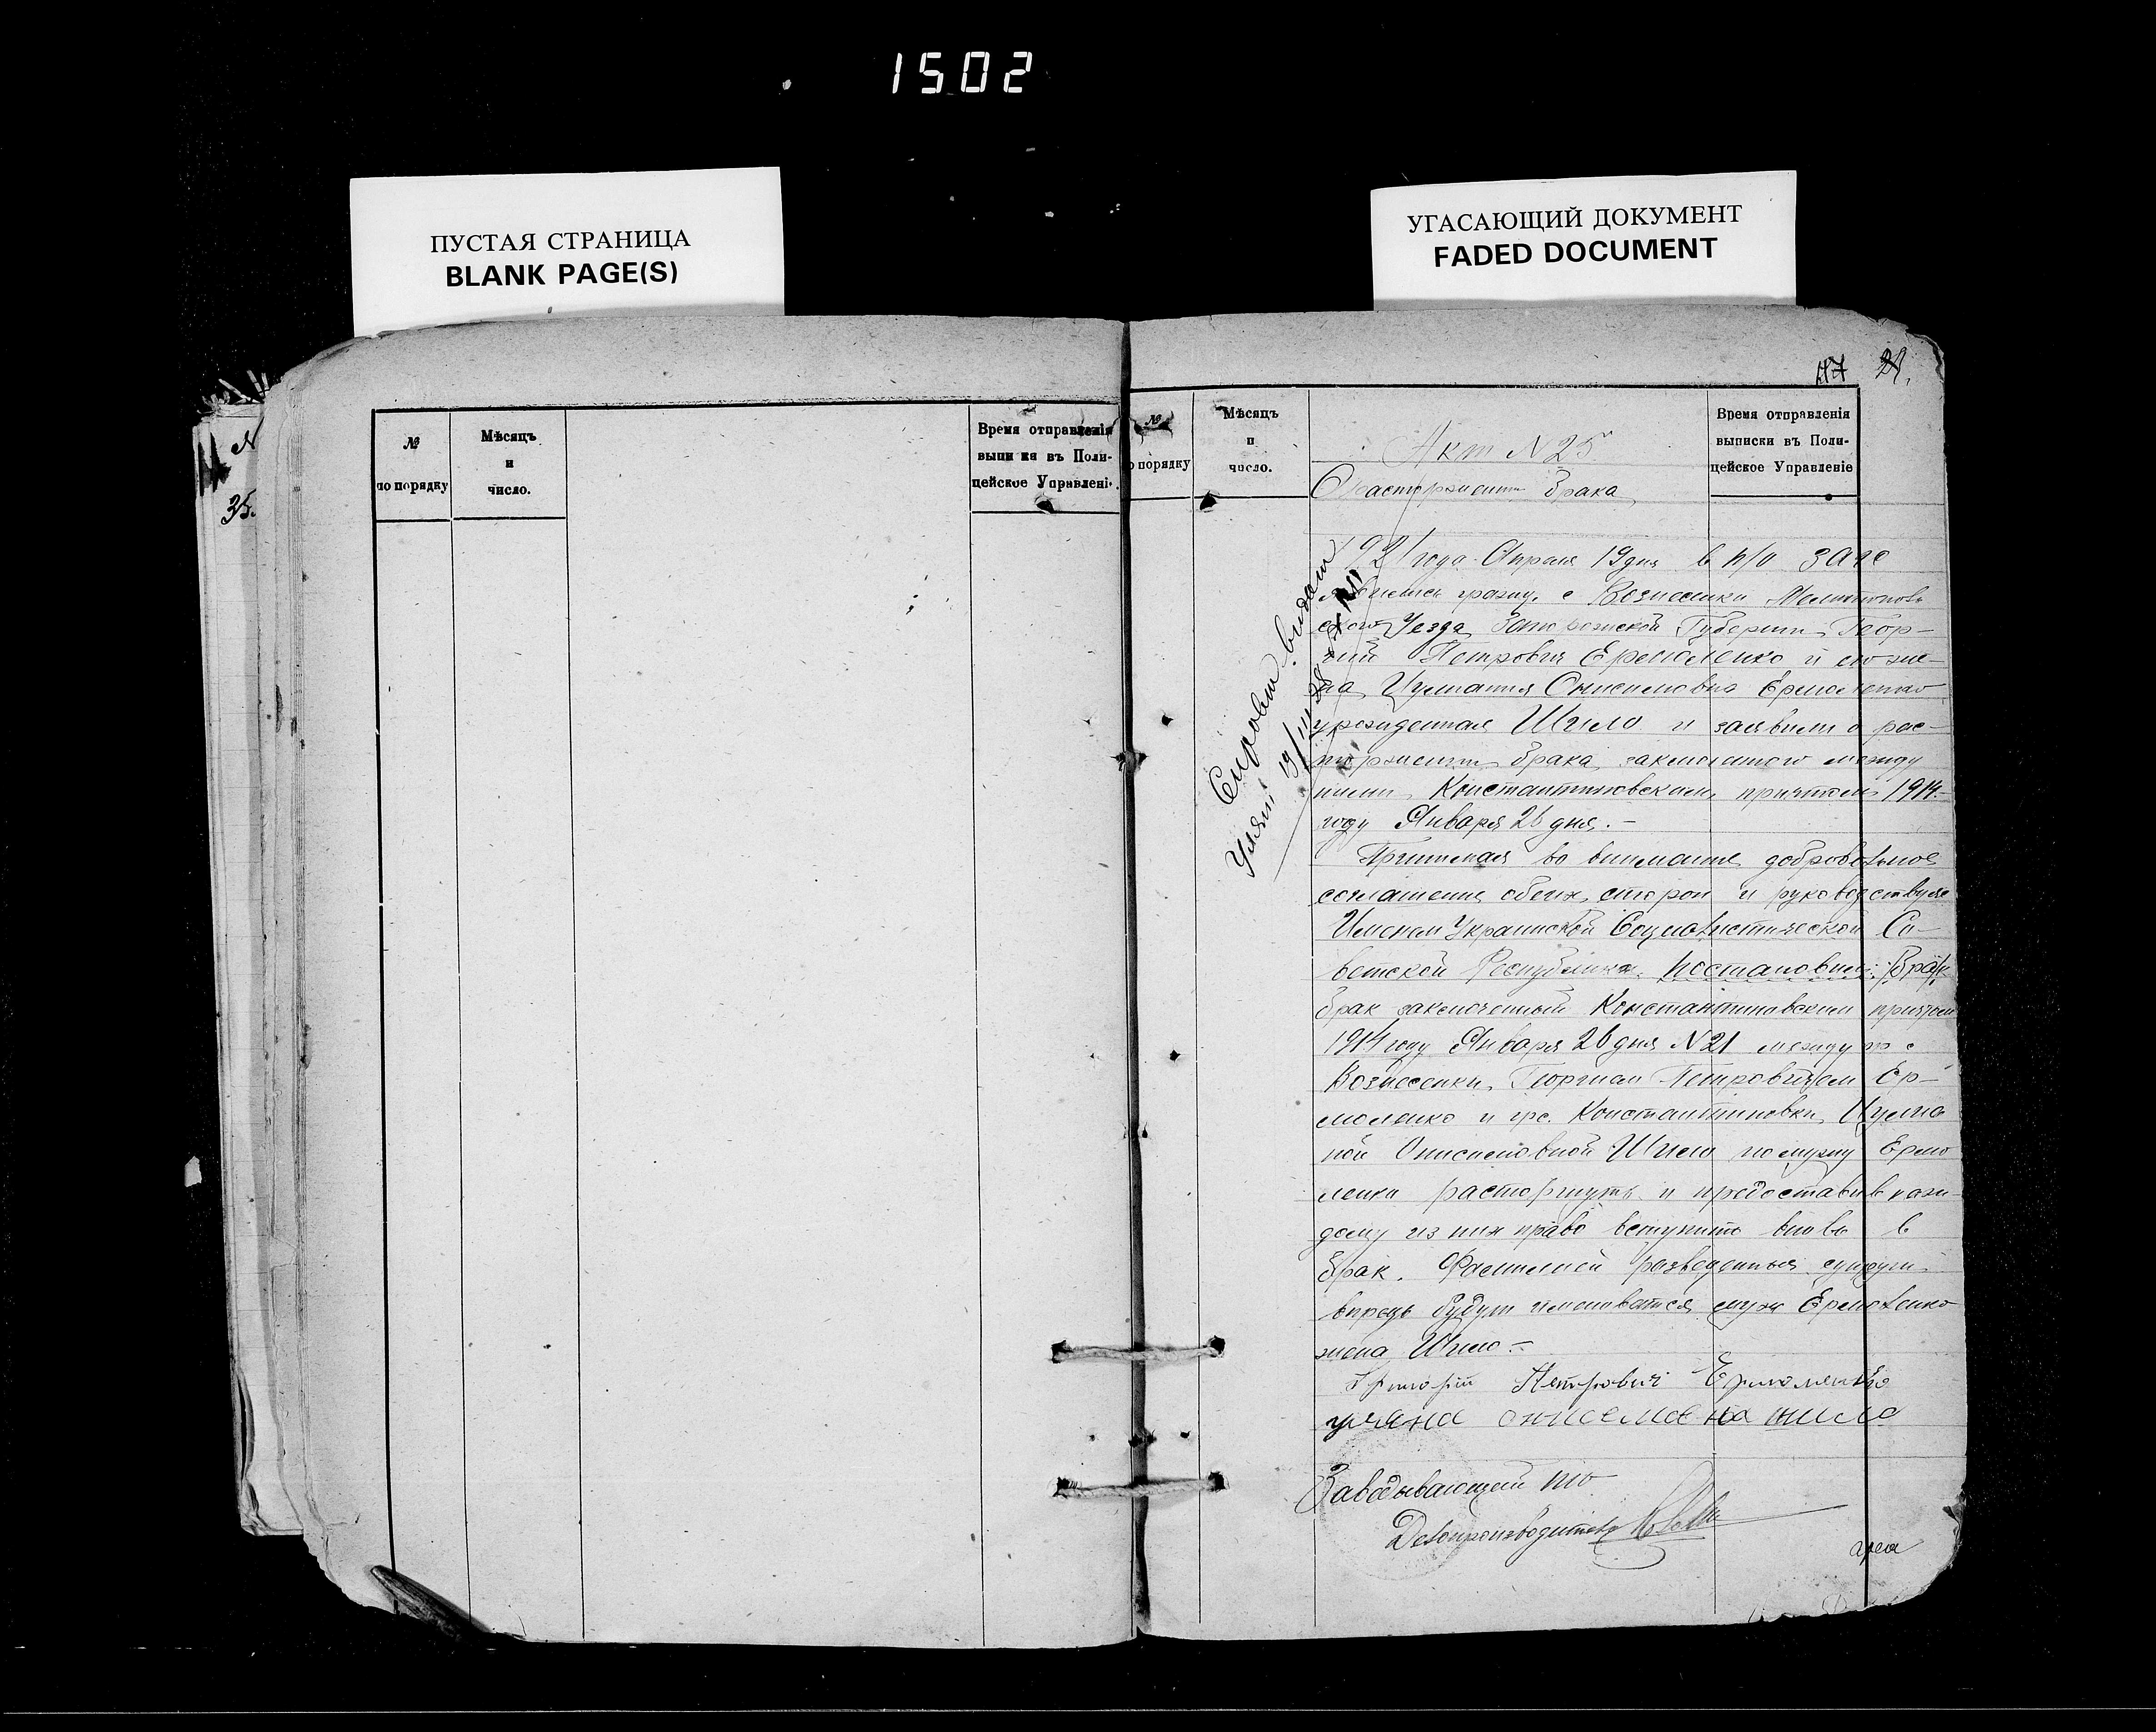 1502
ПУСТАЯ СТРАНИЦА
BLANK PAGE(S)
УГАСАЮЩИЙ ДОКУМЕНТ
FADED DOCUMENT
№
35.
№
по порядку
Мѣсяцъ
и
число.
Время отправленія
выписки въ Поли-
цейское Управленіе.
47 21.
№
по порядку
Мѣсяцъ
и
число.
Время отправленія
выписки въ Поли-
цейское Управленіе
Акт N 25
О расторжении брака
1921 года Апреля 19 дня в п/о загс
явились гражд. с Вознесенки Мелитополь
ского Уезда Запорожской Губернии Геор-
гий Петрович Ермоленко и его же-
на Иулиания Онисимовна Ермоленко
урожденная Шило и заявили о рас-
торжении брака заключенного между
ними Константиновским причтом 1914
году Января 26 дня.-
Принимая во внимание добровольное
соглашение обеих сторон и руководствуясь
Именем Украинской Социалистической Со-
ветской Республики. Постановил: Брак
брак заключенный Константиновским причтом
1914 году Января 26 дня N 21 между гр с
Вознесенки Георгием Петровичем Ер-
моленко и гр с. Константиновки Иулиа
ной Онисимовной Шило по мужу Ермо
ленко расторгнуть и предоставив каж-
дому из них право вступить вновь в
брак. Фамилией разведенныя супруги
впредь будут именоваться муж Ермоленко
жена Шило.-
Петрович Ермоленко
уляна онисемовна шило
Заведывающий
Делопроизводитель
Справки выдан
19/III 28